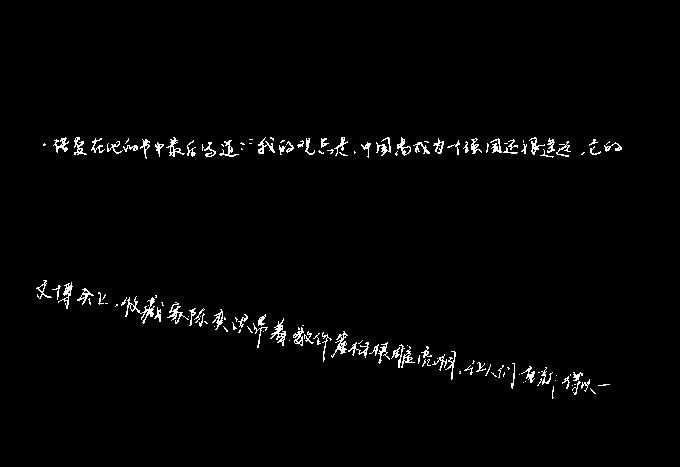 ·塔曼在他的书中最后写道:"我的观点是,中国离成为一个强国还很遥远,它的
文博会上,收藏家陈奕洪带着数件榄雕亮相,让人们有幸得以一